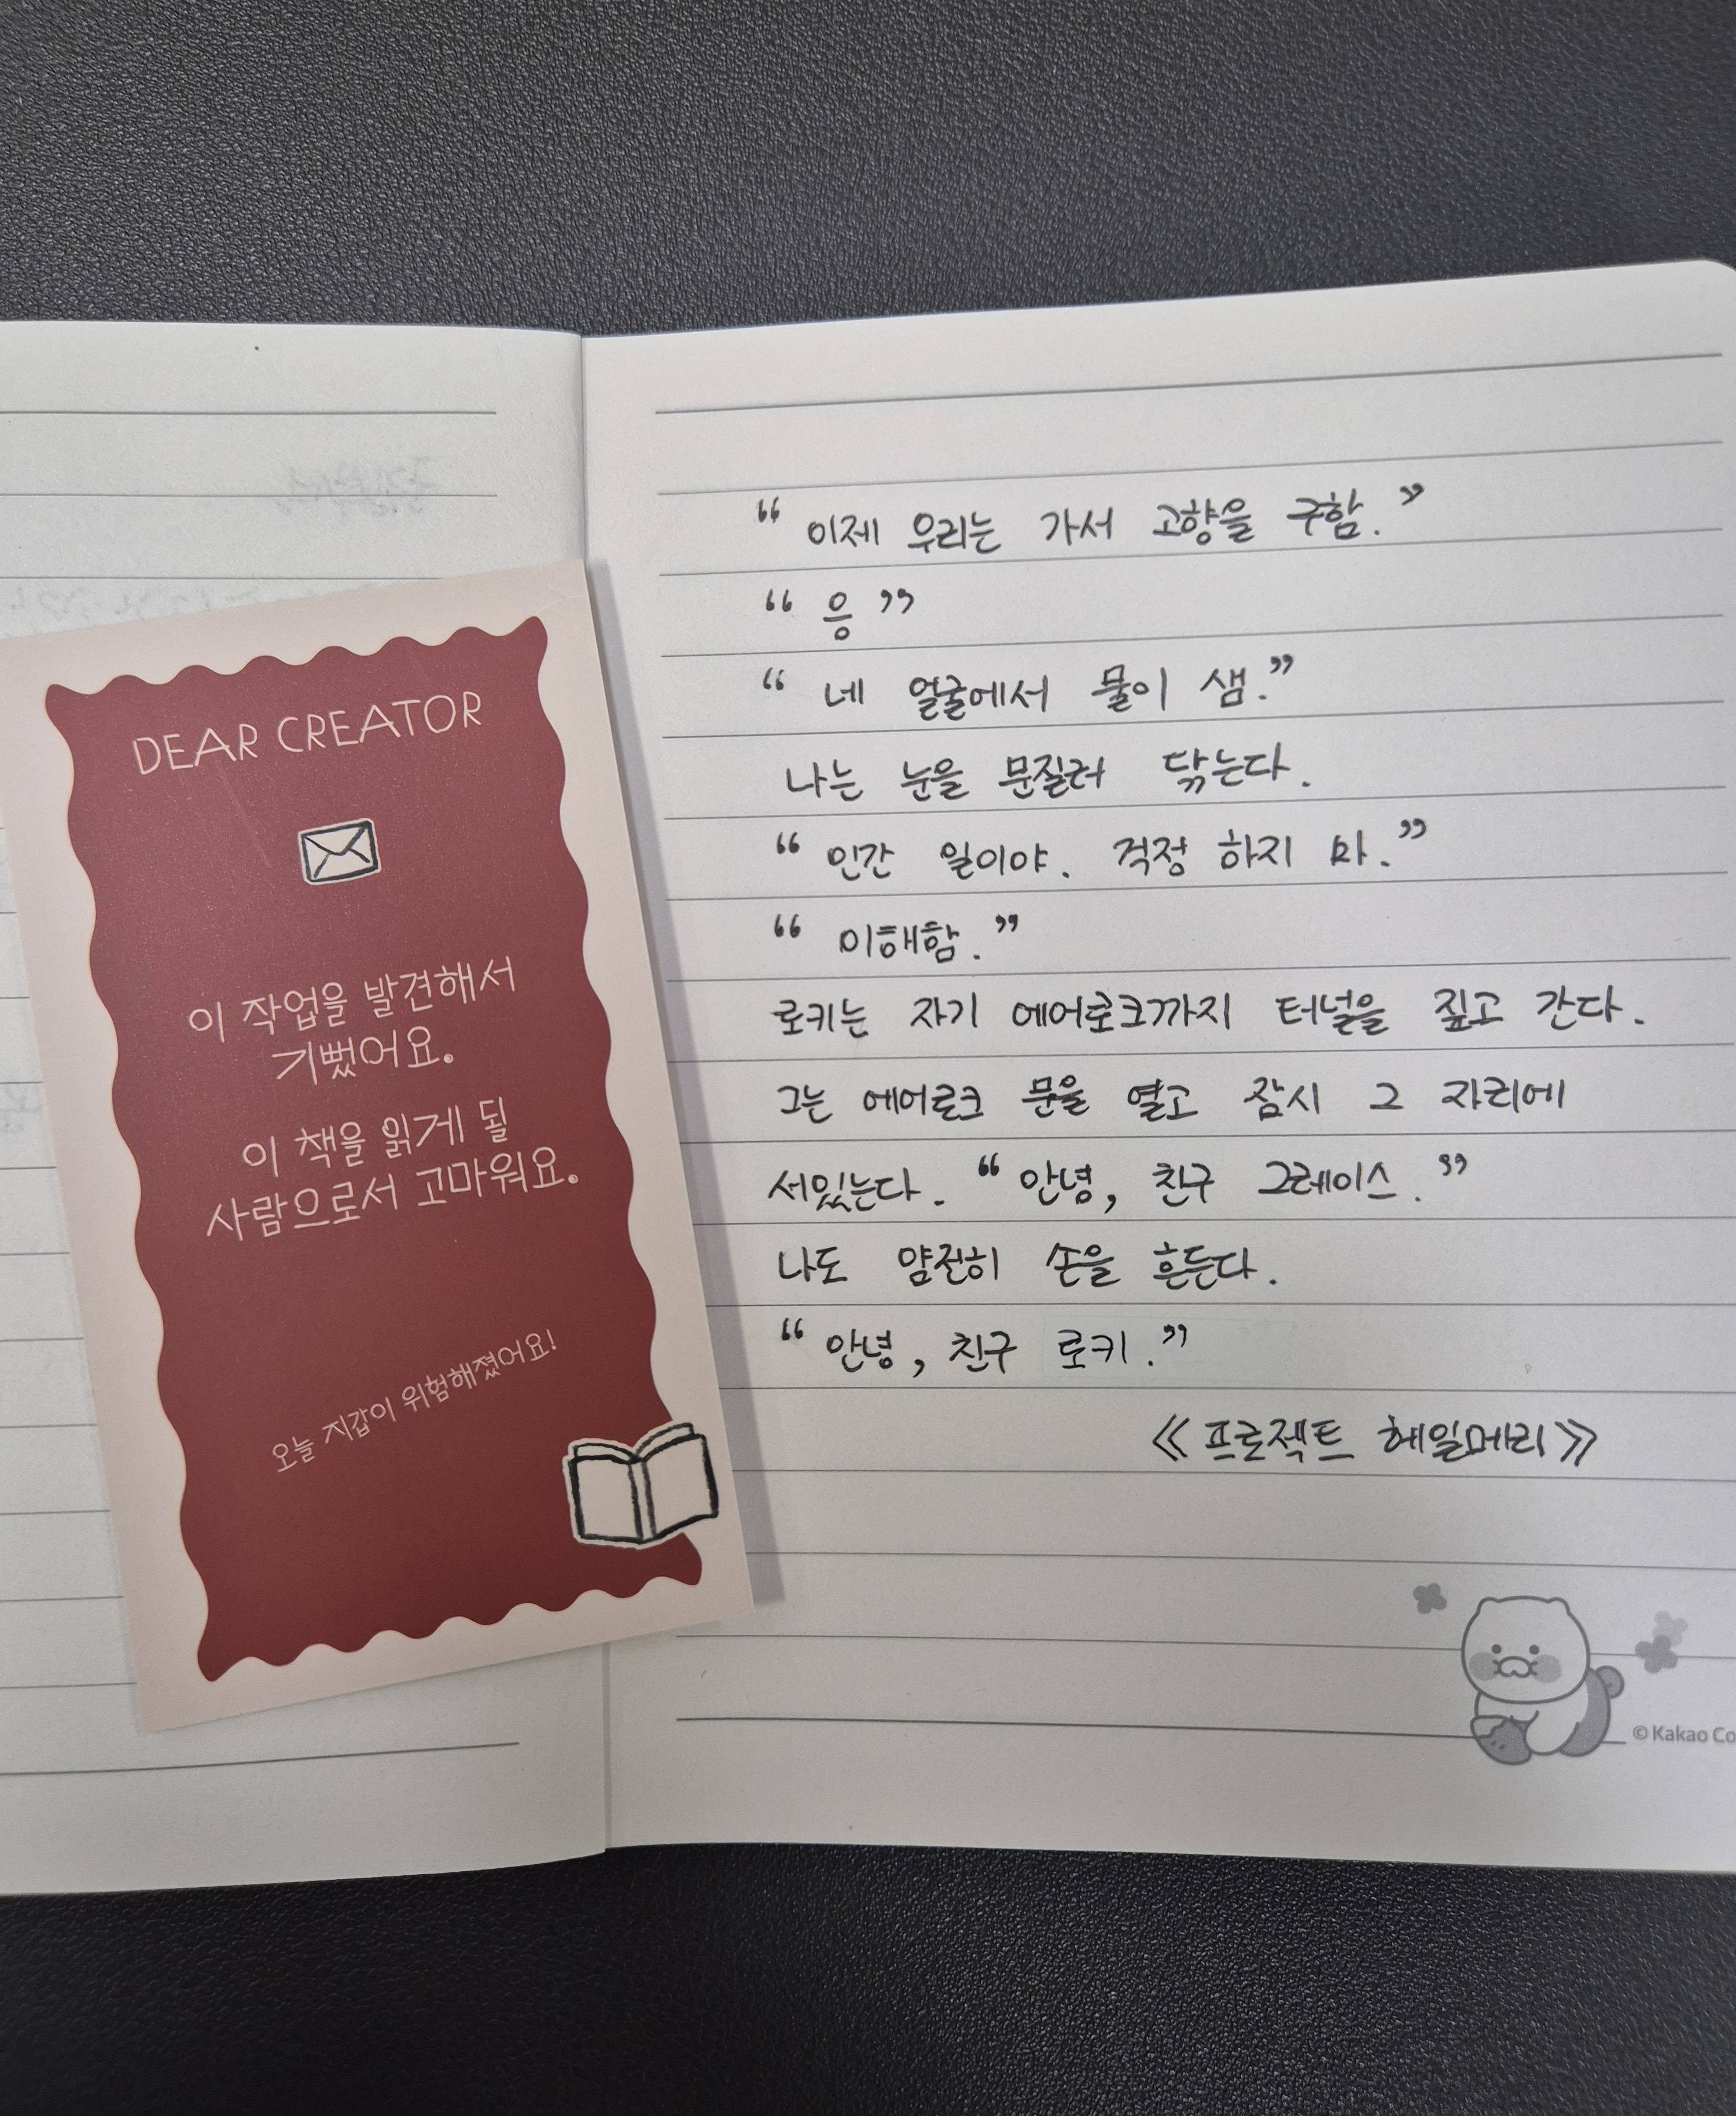 DEAR CREATOR
이 작업을 발견해서
기뻤어요.
이 책을 읽게 될
사람으로서 고마워요.
오늘 지갑이 위험해졌어요!
“ 이제 우리는 가서 고향을 구함. ”
“ 응 ”
“ 네 얼굴에서 물이 샘.”
나는 눈을 문질러 닦는다.
“ 인간 일이야. 걱정 하지 마.”
“ 이해함.”
로키는 자기 에어로크까지 터널을 짚고 간다.
그는 에어로크 문을 열고 잠시 그 자리에
서있는다. “ 안녕, 친구 그레이스.”
나도 얌전히 손을 흔든다.
“ 안녕, 친구 로키.”
《프로젝트 헤일메리》
© Kakao Co